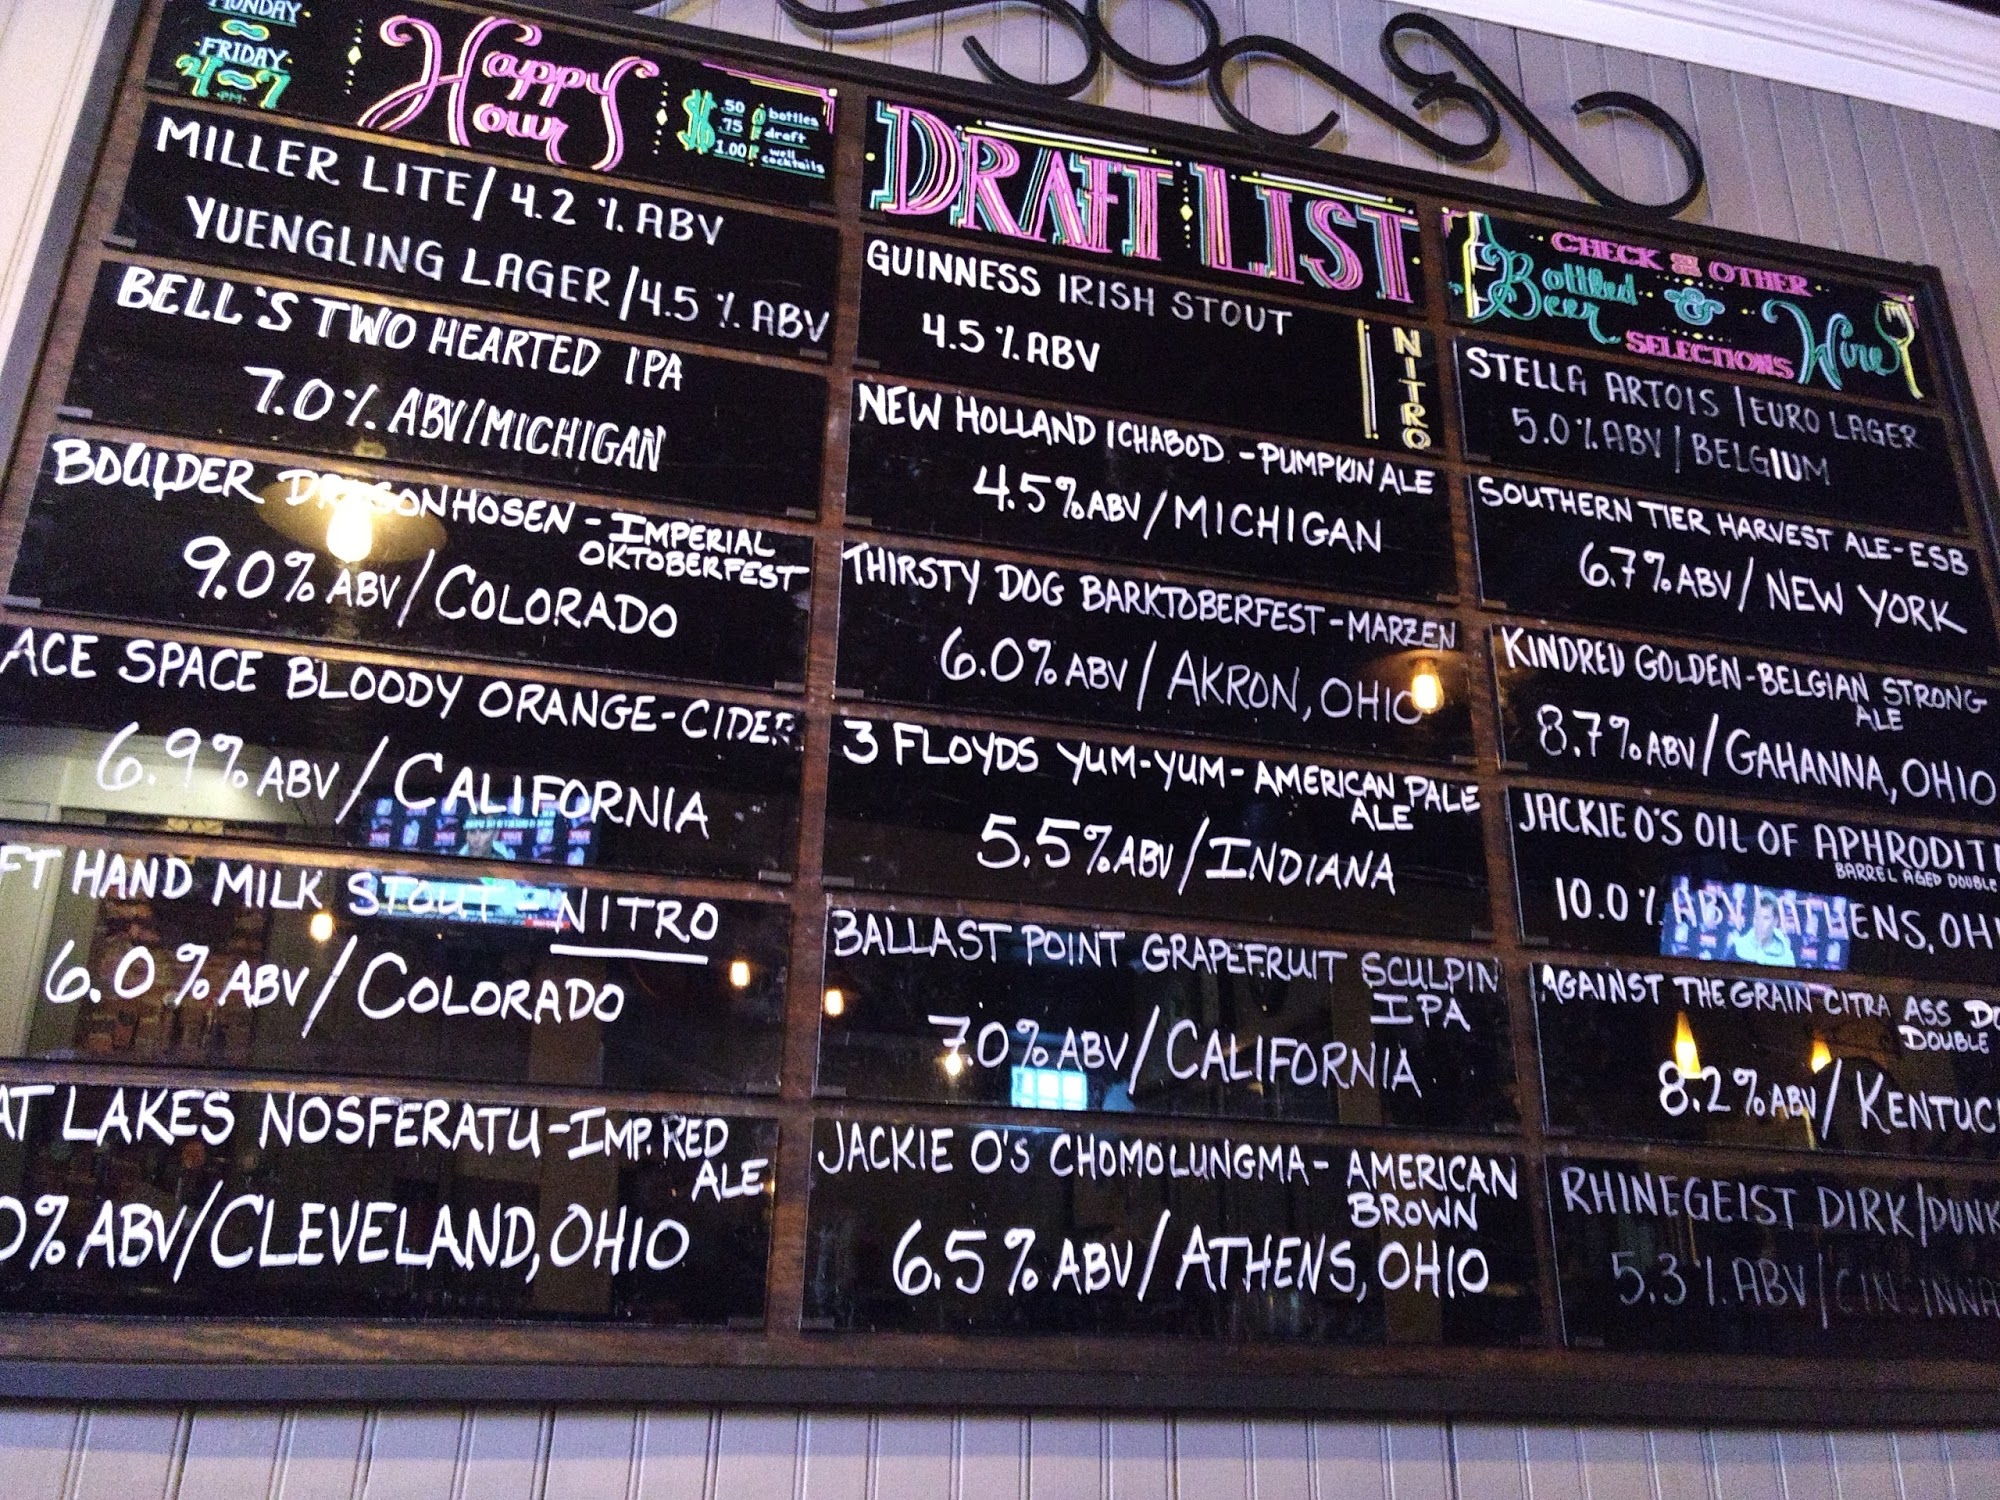 MONDAY
~
FRIDAY
4~7
PM
Happy
Hour
$ .50 off bottles
.75 off draft
1.00 off well
cocktails
MILLER LITE/ 4.2 % ABV
YUENGLING LAGER /4.5 % ABV
BELL'S TWO HEARTED IPA
7.0 % ABV/MICHIGAN
BOULDER DRAGONHOSEN - IMPERIAL
OKTOBERFEST
9.0% ABV/COLORADO
ACE SPACE BLOODY ORANGE-CIDER
6.9% ABV/CALIFORNIA
FT HAND MILK STOUT - NITRO
6.0% ABV/COLORADO
AT LAKES NOSFERATU-IMP. RED
ALE
0% ABV/CLEVELAND, OHIO
DRAFT LIST
GUINNESS IRISH STOUT
4.5 % ABV
NITRO
NEW HOLLAND ICHABOD - PUMPKIN ALE
4.5% ABV/MICHIGAN
THIRSTY DOG BARKTOBERFEST-MARZEN
6.0% ABV/ AKRON, OHIO
3 FLOYDS YUM-YUM- AMERICAN PALE
ALE
5.5% ABV/INDIANA
BALLAST POINT GRAPEFRUIT SCULPIN
IPA
7.0% ABV/CALIFORNIA
JACKIE O'S CHOMOLUNGMA- AMERICAN
BROWN
6.5% ABV/ATHENS, OHIO
CHECK OTHER
Bottled
Beer & Wine
SELECTIONS
STELLA ARTOIS /EURO LAGER
5.0% ABV/BELGIUM
SOUTHERN TIER HARVEST ALE-ESB
6.7% ABV/ NEW YORK
KINDRED GOLDEN-BELGIAN STRONG
ALE
8.7% ABV/GAHANNA, OHIO
JACKIE O'S OIL OF APHRODITE
BARREL AGED DOUBLE
10.0% ABV/ATHENS, OHI
AGAINST THE GRAIN CITRA ASS DO
DOUBLE
8.2% ABV/KENTUC
RHINEGEIST DIRK/DUNK
5.3% ABV/CINCINNA